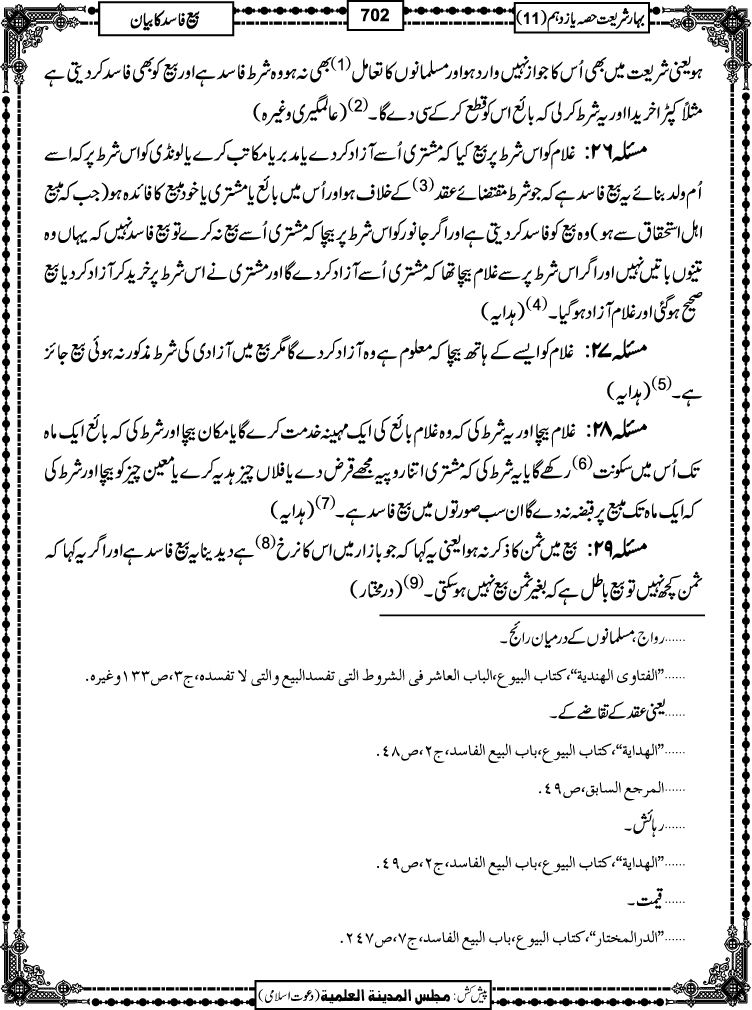 بہارِ شریعت حصہ یازدہم (11)
702
بیع فاسد کا بیان
ہو یعنی شریعت میں بھی اُس کا جواز نہیں وارد ہوا اور مسلمانوں کا تعامل (1) بھی نہ ہو وہ شرط فاسد ہے اور بیع کو بھی فاسد کر دیتی ہے
مثلاً کپڑا خریدا اور یہ شرط کر لی کہ بائع اس کو قطع کر کے سی دے گا۔ (2) (عالمگیری وغیرہ)
مسئلہ ۲۶: غلام کو اس شرط پر بیع کیا کہ مشتری اُسے آزاد کر دے یا مدبر یا مکاتب کرے یا لونڈی کو اس شرط پر کہ اسے
اُم ولد بنائے یہ بیع فاسد ہے کہ جو شرط مقتضائے عقد (3) کے خلاف ہو اور اُس میں بائع یا مشتری یا خود مبیع کا فائدہ ہو (جب کہ مبیع
اہل استحقاق سے ہو) وہ بیع کو فاسد کر دیتی ہے اور اگر جانور کو اس شرط پر بیچا کہ مشتری اُسے بیع نہ کرے تو بیع فاسد نہیں کہ یہاں وہ
تینوں باتیں نہیں اور اگر اس شرط پر سے غلام بیچا تھا کہ مشتری اُسے آزاد کر دے گا اور مشتری نے اس شرط پر خرید کر آزاد کر دیا بیع
صحیح ہو گئی اور غلام آزاد ہو گیا۔ (4) (ہدایہ)
مسئلہ ۲۷: غلام کو ایسے کے ہاتھ بیچا کہ معلوم ہے وہ آزاد کر دے گا مگر بیع میں آزادی کی شرط مذکور نہ ہوئی بیع جائز
ہے۔ (5) (ہدایہ)
مسئلہ ۲۸: غلام بیچا اور یہ شرط کی کہ وہ غلام بائع کی ایک مہینہ خدمت کرے گا یا مکان بیچا اور شرط کی کہ بائع ایک ماہ
تک اُس میں سکونت (6) رکھے گا یا یہ شرط کی کہ مشتری اتنا روپیہ مجھے قرض دے یا فلاں چیز ہدیہ کرے یا معین چیز کو بیچا اور شرط کی
کہ ایک ماہ تک مبیع پر قبضہ نہ دے گا ان سب صورتوں میں بیع فاسد ہے۔ (7) (ہدایہ)
مسئلہ ۲۹: بیع میں ثمن کا ذکر نہ ہوا یعنی یہ کہا کہ جو بازار میں اس کا نرخ (8) ہے دیدینا یہ بیع فاسد ہے اور اگر یہ کہا کہ
ثمن کچھ نہیں تو بیع باطل ہے کہ بغیر ثمن بیع نہیں ہو سکتی۔ (9) (درمختار)
......رواج، مسلمانوں کے درمیان رائج۔
......”الفتاوی الهندية“، كتاب البيوع، الباب العاشر فى الشروط التى تفسد البيع والتى لا تفسده، ج٣، ص١٣٣ وغيره.
......یعنی عقد کے تقاضے کے۔
......”الهداية“، كتاب البيوع، باب البيع الفاسد، ج٢، ص٤٨.
......المرجع السابق، ص٤٩.
......رہائش۔
......”الهداية“، كتاب البيوع، باب البيع الفاسد، ج٢، ص٤٩.
......قیمت۔
......”الدرالمختار“، كتاب البيوع، باب البيع الفاسد، ج٧، ص٢٤٧.
پیش کش: مجلس المدینة العلمیة (دعوت اسلامی)